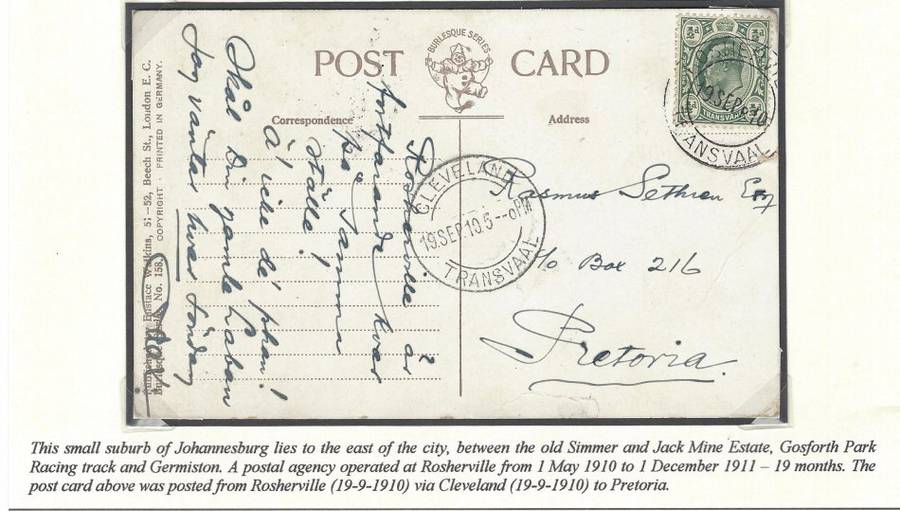 BURLESQUE SERIES
POST CARD
Correspondence
Address
½d ½d
½d ½d
TRANSVAAL
19 SEP 10
TRANSVAAL
CLEVELAND
19.SEP.10.5--0PM
TRANSVAAL
Rosherville är
fortfarande kvar
på samma
ställe!
Skål Din gamla
Jag väntar hvar söndag
Rasmus Sethren Esq
c/o Box 216
Pretoria.
Eustace Watkins, 51-52, Beech St., London E. C.
No. 158. COPYRIGHT · PRINTED IN GERMANY.
This small suburb of Johannesburg lies to the east of the city, between the old Simmer and Jack Mine Estate, Gosforth Park
Racing track and Germiston. A postal agency operated at Rosherville from 1 May 1910 to 1 December 1911 – 19 months. The
post card above was posted from Rosherville (19-9-1910) via Cleveland (19-9-1910) to Pretoria.